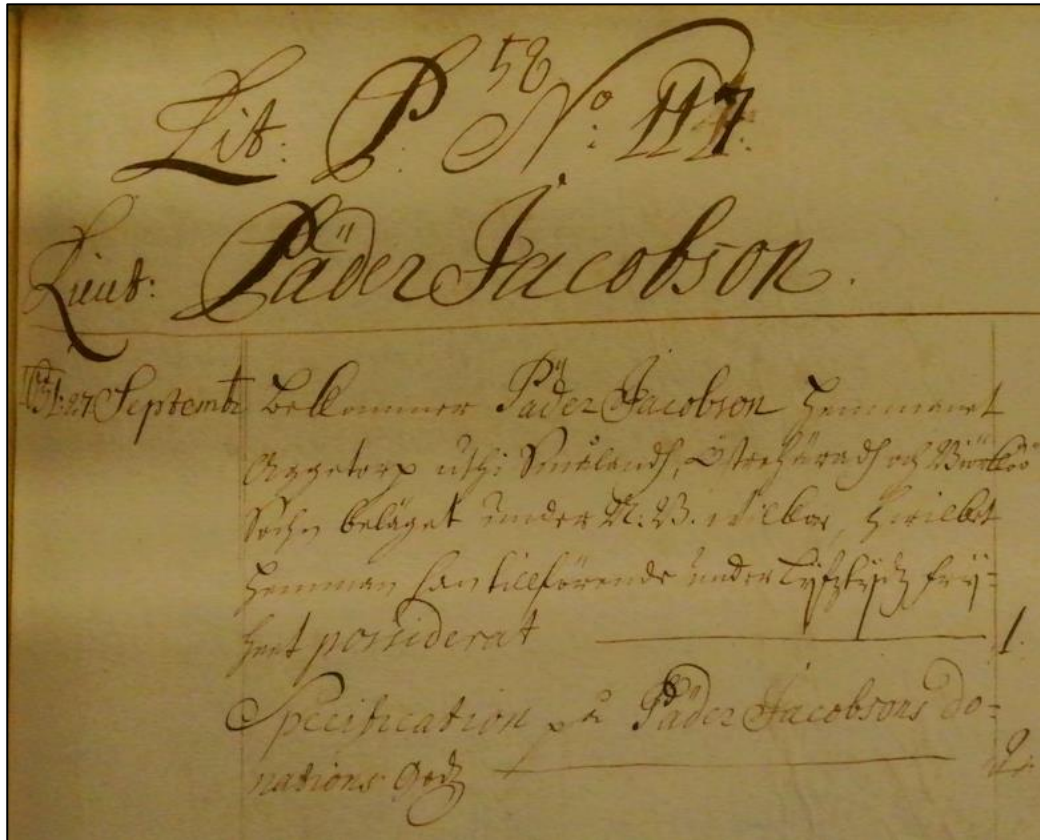 58
Lit: P. No: 117.
Lieut: Päder Jacobson.
1651: 27 Septembr Bekommer Päder Jacobson Hemmanet
Aggetorp uthi Smålandh, Östrehäradh och
Sochn beläget under N: B. wilkor, hwilket
Hemman han tillförende under Lÿfztÿdz frÿ=
heet possiderat 1.
Specification på Päder Jacobsons do=
nations Godz 2.